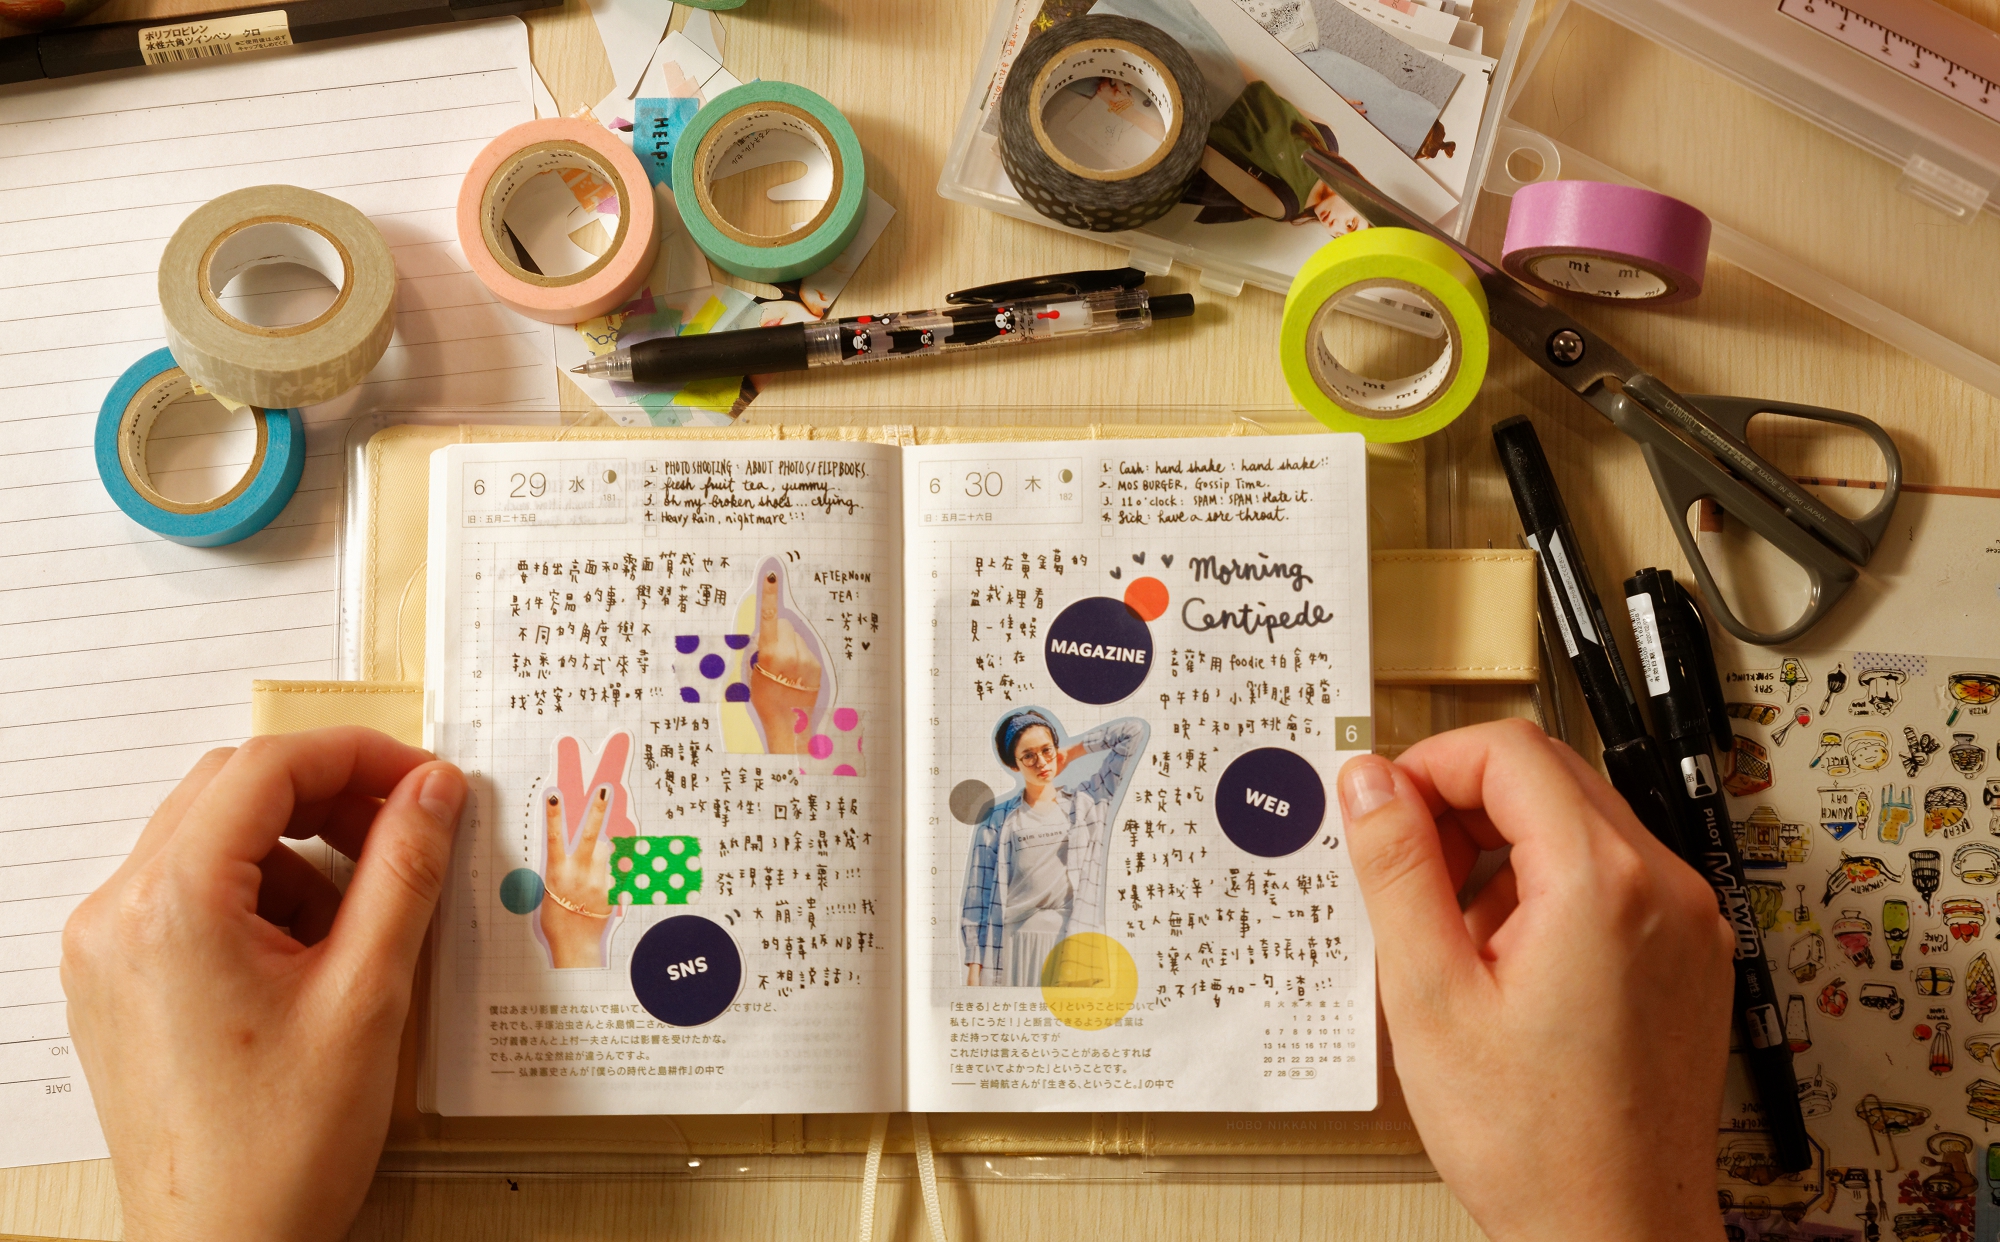 ポリプロピレン
水性六角ツインペン クロ
HELP:
mt mt mt
mt mt
mt
CANARY BONDFREE MADE IN SEKI JAPAN
6 29 水
181
旧:五月二十五日
1. PHOTOSHOOTING: ABOUT PHOTOS/FLIPBOOKS.
2. fresh fruit tea, yummy.
3. oh my broken shoes... crying.
4. Heavy Rain, nightmare!!!
要拍出亮面和霧面質感也不
是件容易的事,學習著運用
不同的角度與不
熟悉的方式來尋
找答案,好禪呀!!!
AFTERNOON
TEA:
一芳水果
茶♥
下班的
暴雨讓人
傻眼,完全是200%
的攻擊性!回家塞了報
紙開了除濕機才
發現鞋子壞了!!!
大崩潰!!!!!!我
的韓版NB鞋...
不想說話了!
SNS
6
9
12
15
18
21
0
3
僕はあまり影響されないで描いて ですけど、
それでも、手塚治虫さんと永島慎二さん
つげ義春さんと上村一夫さんには影響を受けたかな。
でも、みんな全然絵が違うんですよ。
—— 弘兼憲史さんが『僕らの時代と島耕作』の中で
6 30 木
182
旧:五月二十六日
1. Cash: hand shake: hand shake!!
2. MOS BURGER, Gossip Time.
3. 11 o'clock: SPAM: SPAM: Hate it.
4. Sick: have a sore throat.
Morning
Centipede
早上在黃金葛的
盆栽裡看
見一隻蜈
蚣!在
幹麼!!!
MAGAZINE
喜歡用foodie拍食物,
中午拍了小雞腿便當!
晚上和阿桃會合,
隨便
決定去吃
摩斯,大
講了狗仔
爆料秘辛,還有藝人與經
紀人無恥故事,一切都
讓人感到誇張憤怒,
忍不住要加一句,渣!!!
WEB
Calm urbane
6
6
9
12
15
18
21
0
3
「生きる」とか「生き抜く」ということについて
私も「こうだ!」と断言できるような言葉は
まだ持ってないんですが
これだけは言えるということがあるとすれば
「生きていてよかった」ということです。
—— 岩崎航さんが『生きる、ということ。』の中で
月 火 水 木 金 土 日
1 2 3 4 5
6 7 8 9 10 11 12
13 14 15 16 17 18 19
20 21 22 23 24 25 26
27 28 29 30
HOBO NIKKAN ITOI SHINBUN
NO.
DATE
PILOT
Twin
SPARKLING
PIZZA
BAGEL
BRUNCH
DAY
BREAD
SPAGHETTI
PAN
CAKE